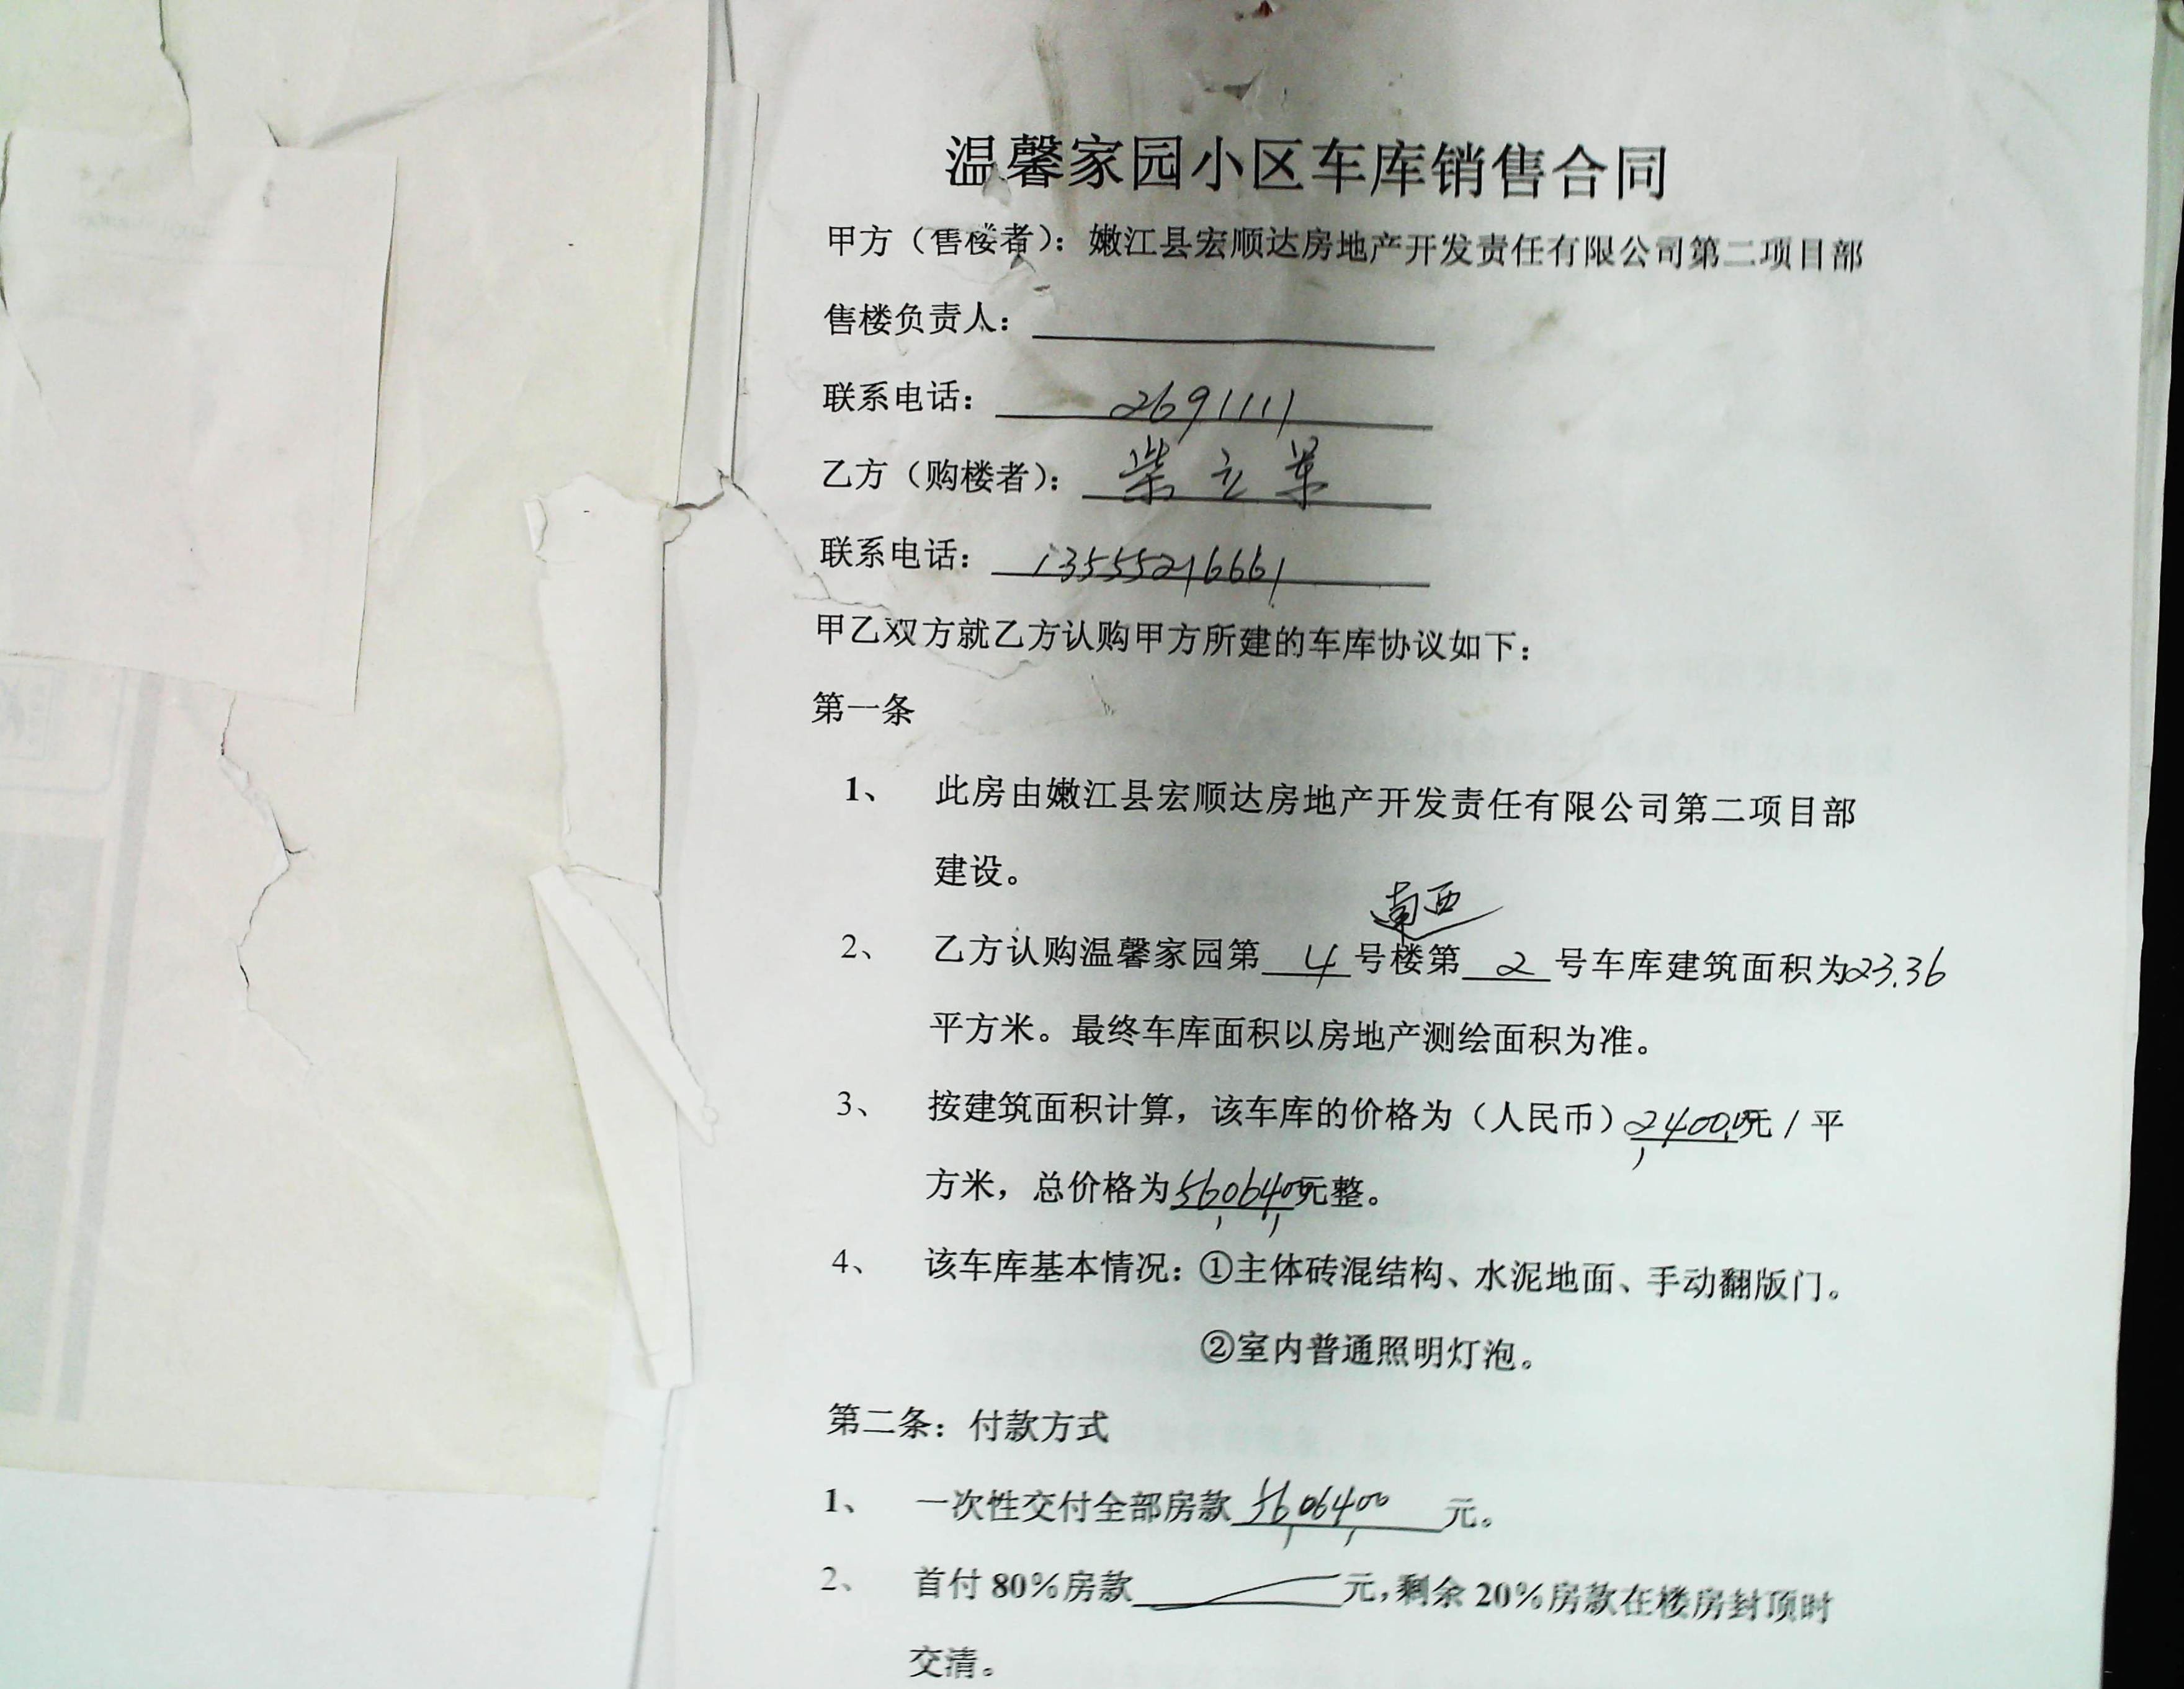 温馨家园小区车库销售合同
甲方（售楼者）：嫩江县宏顺达房地产开发责任有限公司第二项目部
售楼负责人：
联系电话：2691111
乙方（购楼者）：柴立
联系电话：13555216661
甲乙双方就乙方认购甲方所建的车库协议如下：
第一条
1、 此房由嫩江县宏顺达房地产开发责任有限公司第二项目部
建设。
南西
2、 乙方认购温馨家园第 4 号楼第 2 号车库建筑面积为23.36
平方米。最终车库面积以房地产测绘面积为准。
3、 按建筑面积计算，该车库的价格为（人民币）2,400.00元/平
方米，总价格为56,064.00元整。
4、 该车库基本情况：①主体砖混结构、水泥地面、手动翻版门。
②室内普通照明灯泡。
第二条：付款方式
1、 一次性交付全部房款 56,064.00 元。
2、 首付80%房款 元,剩余20%房款在楼房封顶时
交清。